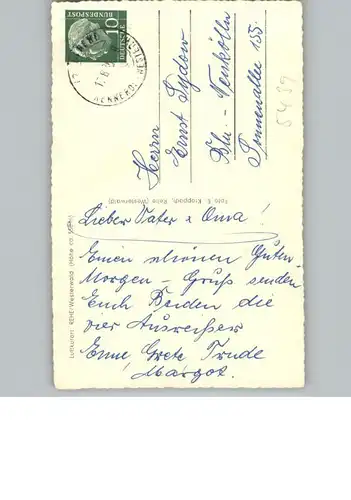 10
DEUTSCHE
BUNDESPOST
REHE
Herrn
Ernst Sydow
Bln. - Neukölln
Sonnenallee 155.
5439
Foto E. Kroppach, Rehe (Westerwald)
Luftkurort REHE/Westerwald (Höhe ca.
Lieber Vater & Oma!
Einen schönen Guten-
Morgen - Gruß senden
Euch Beiden die
vier Ausreißer
Erne Grete Trude
Margot.